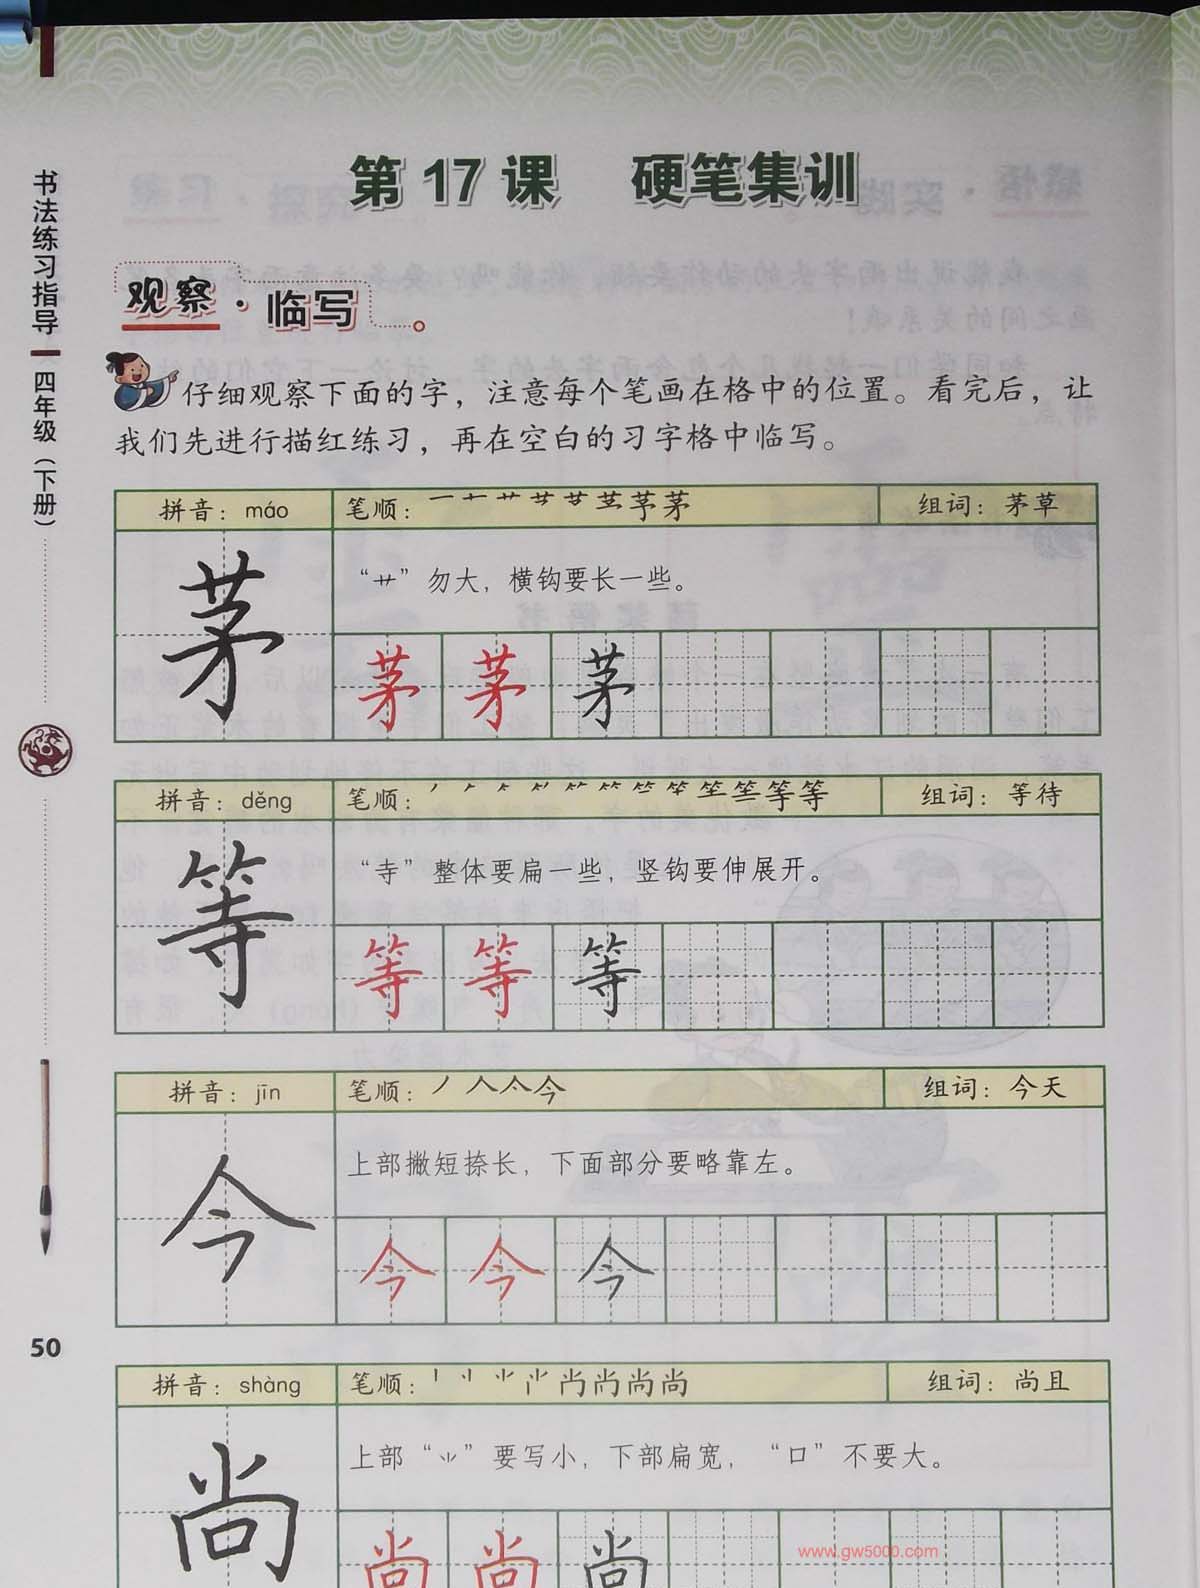 书法练习指导
四年级（下册）
50
第 17 课 硬笔集训
观察·临写
仔细观察下面的字，注意每个笔画在格中的位置。看完后，让
我们先进行描红练习，再在空白的习字格中临写。
拼音：máo 笔顺： 组词：茅草
茅
“艹”勿大，横钩要长一些。
茅 茅 茅
拼音：děng 笔顺： 组词：等待
等
“寺”整体要扁一些，竖钩要伸展开。
等 等 等
拼音：jīn 笔顺： 组词：今天
今
上部撇短捺长，下面部分要略靠左。
今 今 今
拼音：shàng 笔顺： 组词：尚且
尚
上部“⺌”要写小，下部扁宽，“口”不要大。
尚 尚 尚
www.gw5000.com